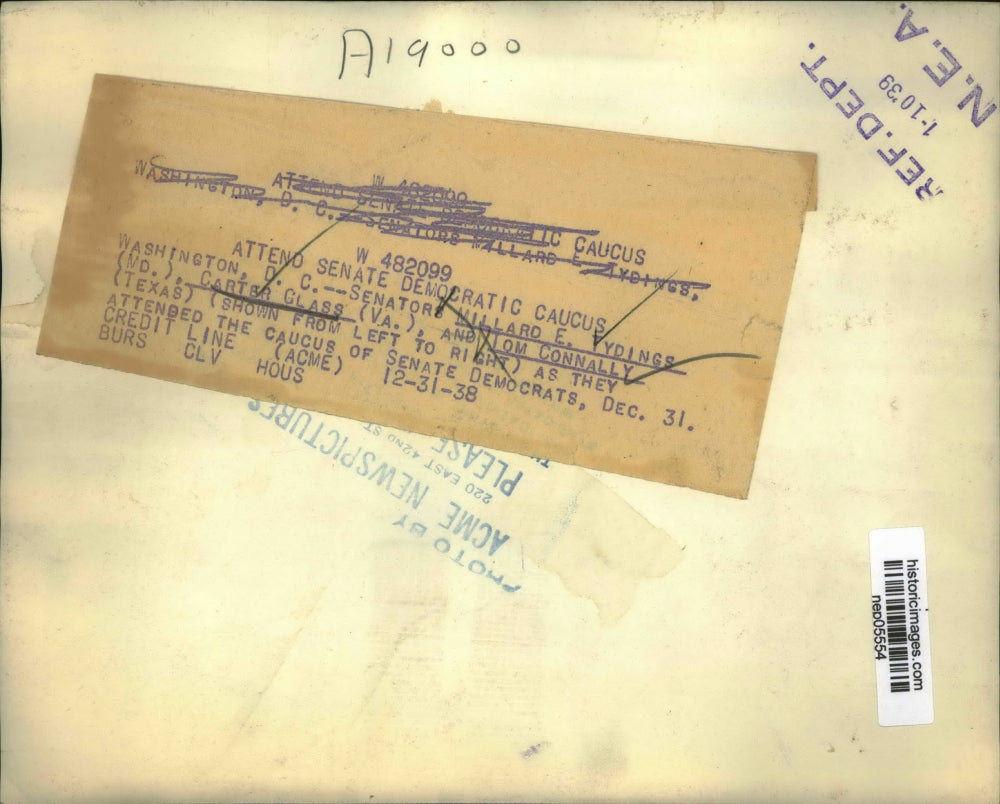 A19000
N.E.A.
1-10'39
REF. DEPT.
W 482090
ATTEND SENATE DEMOCRATIC CAUCUS
WASHINGTON, D. C.--SENATORS MILLARD E. TYDINGS,
W 482099
ATTEND SENATE DEMOCRATIC CAUCUS
WASHINGTON, D. C.--SENATORS MILLARD E. TYDINGS
(MD.), CARTER GLASS (VA.), AND TOM CONNALLY
(TEXAS) (SHOWN FROM LEFT TO RIGHT) AS THEY
ATTENDED THE CAUCUS OF SENATE DEMOCRATS, DEC. 31.
CREDIT LINE (ACME) 12-31-38
BURS CLV HOUS
PHOTO BY
ACME NEWSPICTURES
220 EAST 42ND ST
PLEASE
historicimages.com
nep05554